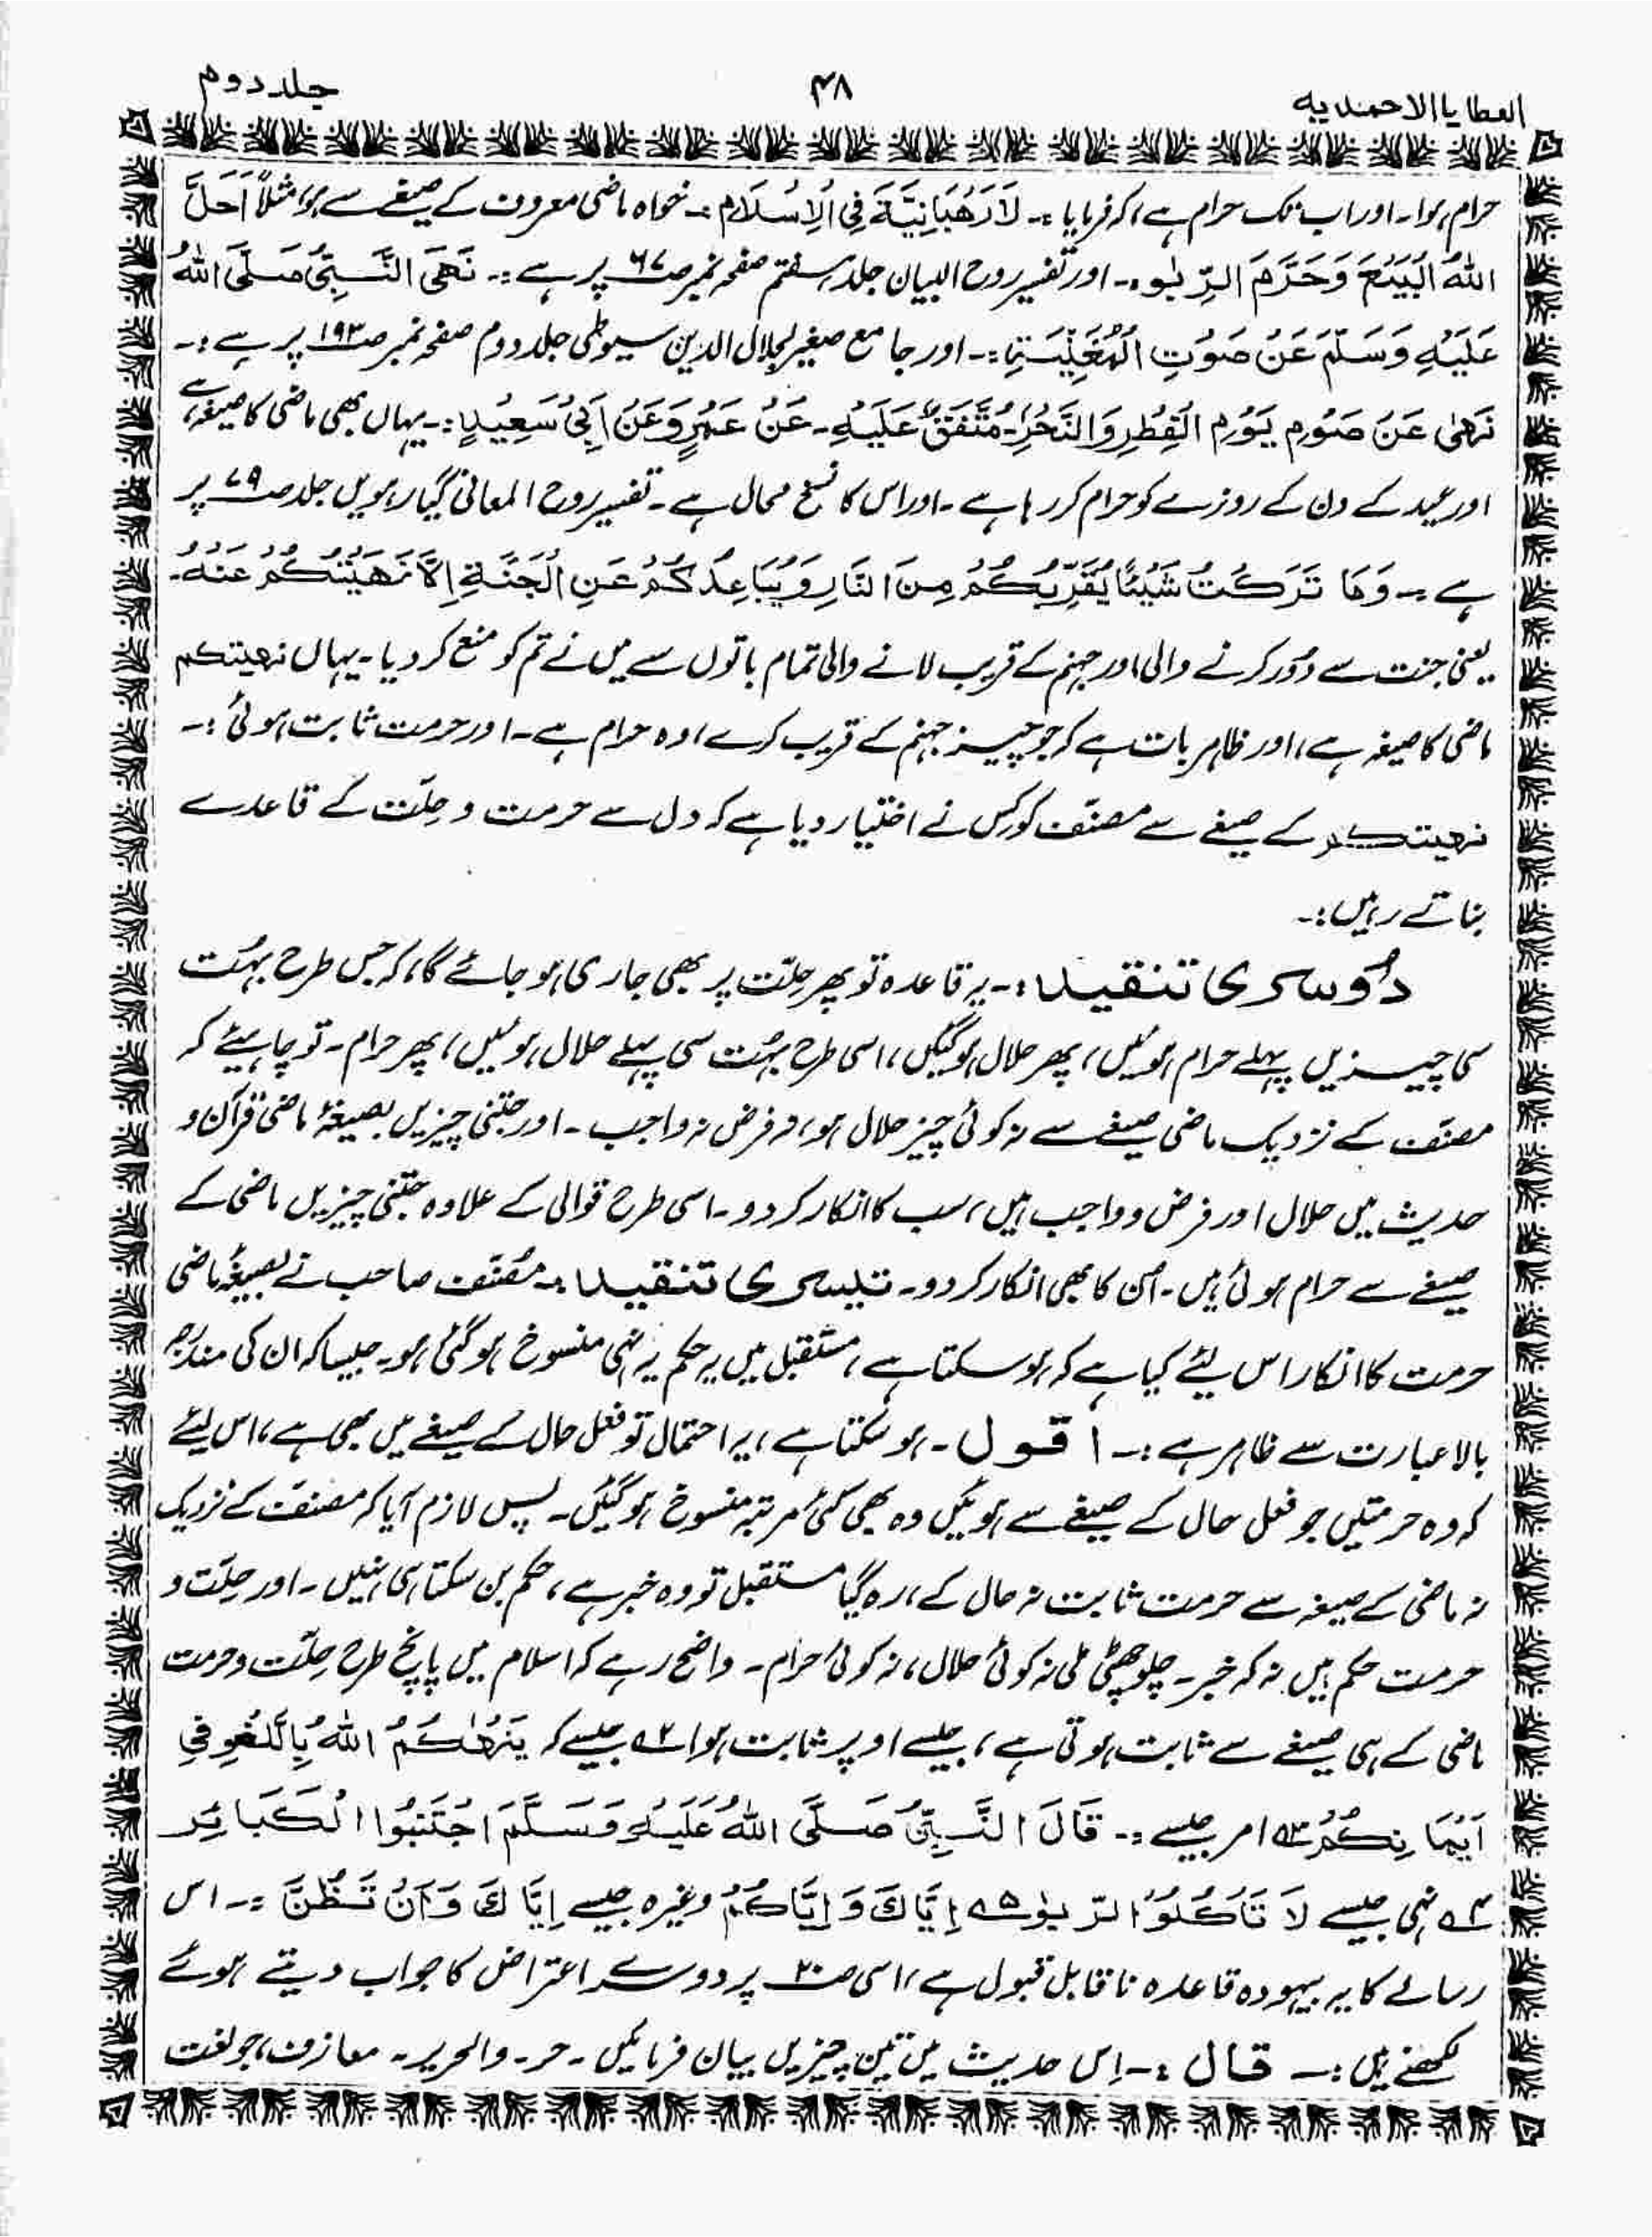 العطایا الاحمدیہ
۴۸
جلد دوم
حرام ہوا۔ اور اب تک حرام ہے، کہ فرمایا :۔ لَا رَهْبَانِيَّةَ فِي الْاِسْلَام :۔ خواہ ماضی معروف کے صیغے سے ہو، مثلاً اَحَلَّ
اللهُ الْبَيْعَ وَحَرَّمَ الرِّبٰوہ۔ اور تفسیر روح البیان جلد ہفتم صفحہ نمبر صـ۶۷ پر ہے :۔ نَهَى النَّبِيُّ صَلَّى اللهُ
عَلَيْهِ وَسَلَّمَ عَنْ صَوْتِ الْمُغَنِّيَةِ :۔ اور جامع صغیر لجلال الدین سیوطی جلد دوم صفحہ نمبر صـ۱۹۳ پر ہے :۔
نَهٰى عَنْ صَوْمِ يَوْمِ الْفِطْرِ وَالنَّحْرِ۔ مُتَّفَقٌ عَلَيْهِ۔ عَنْ عَمْرٍ وَعَنْ اَبِيْ سَعِيْدٍ :۔ یہاں بھی ماضی کا صیغہ ہے،
اور عید کے دن کے روزے کو حرام کر رہا ہے۔ اور اس کا نسخ محال ہے۔ تفسیر روح المعانی گیارہویں جلد صـ۷۹ پر
ہے :۔ وَمَا تَرَكْتُ شَيْئًا يُقَرِّبُكُمْ مِنَ النَّارِ وَيُبَاعِدُكُمْ عَنِ الْجَنَّةِ اِلَّا نَهَيْتُكُمْ عَنْهُ۔
یعنی جنت سے دُور کرنے والی اور جہنم کے قریب لانے والی تمام باتوں سے میں نے تم کو منع کر دیا۔ یہاں نھیتکم
ماضی کا صیغہ ہے، اور ظاہر بات ہے کہ جو چیز جہنم کے قریب کرے، وہ حرام ہے۔ اور حرمت ثابت ہوئی :۔
نھیتکم کے صیغے سے مصنّف کو کس نے اختیار دیا ہے کہ دل سے حرمت و حلّت کے قاعدے
بناتے رہیں :۔
دُوسری تنقید :۔ یہ قاعدہ تو پھر حلّت پر بھی جاری ہو جائے گا، کہ جس طرح بہُت
سی چیزیں پہلے حرام ہوئیں، پھر حلال ہوگئیں، اسی طرح بہُت سی پہلے حلال ہوئیں، پھر حرام۔ تو چاہیئے کہ
مصنّف کے نزدیک ماضی صیغے سے نہ کوئی چیز حلال ہو، نہ فرض نہ واجب۔ اور جتنی چیزیں بصیغۂ ماضی قرآن و
حدیث میں حلال اور فرض و واجب ہیں، سب کا انکار کر دو۔ اسی طرح قوالی کے علاوہ جتنی چیزیں ماضی کے
صیغے سے حرام ہوئی ہیں۔ اُن کا بھی انکار کر دو۔ تیسری تنقید :۔ مصَنّف صاحب نے بصیغۂ ماضی
حرمت کا انکار اس لیئے کیا ہے کہ ہو سکتا ہے، مستقبل میں یہ حکم یہ نہی منسوخ ہو گئی ہو۔ جیسا کہ ان کی مندرجہ
بالا عبارت سے ظاہر ہے :۔ اقول۔ ہو سکتا ہے، یہ احتمال تو فعل حال کے صیغے میں بھی ہے، اس لیئے
کہ وہ حرمتیں جو فعل حال کے صیغے سے ہوئیں وہ بھی کئی مرتبہ منسوخ ہوگئیں۔ پس لازم آیا کہ مصنف کے نزدیک
نہ ماضی کے صیغہ سے حرمت ثابت نہ حال کے، رہ گیا مستقبل تو وہ خبر ہے، حکم بن سکتا ہی نہیں۔ اور حلّت و
حرمت حکم ہیں نہ کہ خبر۔ چلو چھٹی ملی نہ کوئی حلال، نہ کوئی حرام۔ واضح رہے کہ اسلام میں پانچ طرح حِلّت و حرمت
ماضی کے ہی صیغے سے ثابت ہوتی ہے، جیسے اوپر ثابت ہوا ؎۲ جیسے کہ يَنْهٰكُمُ اللهُ بِاللَّغْوِ فِي
اَيْمَانِكُمْ ؎۳ امر جیسے :۔ قَالَ النَّبِيُّ صَلَّى اللهُ عَلَيْهِ وَسَلَّمَ اجْتَنِبُوا الْكَبَائِر
؎۴ نہی جیسے لَا تَأْكُلُوْا الرِّبٰوا ؎۵ اِيَّاكَ وَ اِيَّاكُمْ وغیرہ جیسے اِيَّاكَ وَاَنْ تَظُنَّ :۔ اس
رسالے کا یہ بیہودہ قاعدہ ناقابل قبول ہے، اسی صـ۲۰ پر دوسرے اعتراض کا جواب دیتے ہوئے
لکھتے ہیں :۔ قال :۔ اِس حدیث میں تین چیزیں بیان فرمائیں۔ حر۔ والحریر۔ معازف، جو لغت